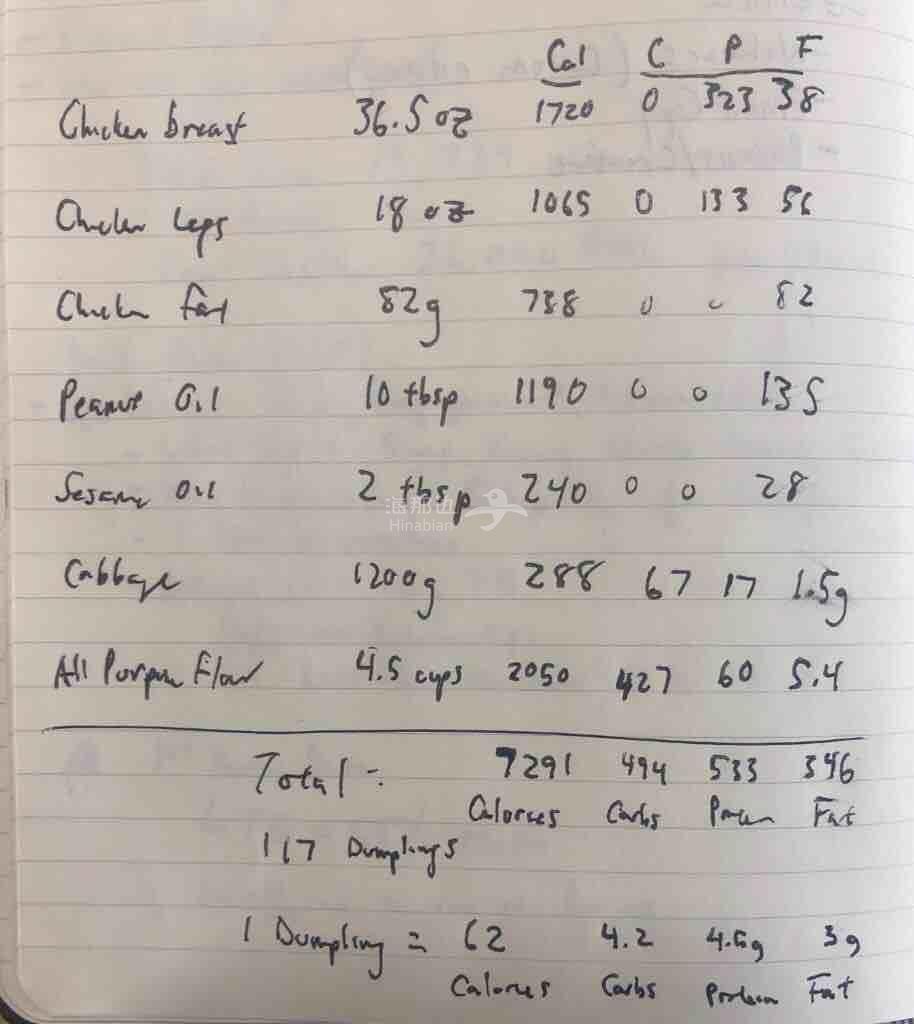 Cal C P F
Chicken breast 36.5 oz 1720 0 323 38
Chicken Legs 18 oz 1065 0 133 56
Chicken fat 82g 738 0 0 82
Peanut Oil 10 tbsp 1190 0 0 135
Sesame Oil 2 tbsp 240 0 0 28
海那边
Hinabian
Cabbage 1200g 288 67 17 1.5g
All Purpose Flour 4.5 cups 2050 427 60 5.4
Total: 7291 494 533 346
Calories Carbs Protein Fat
117 Dumplings
1 Dumpling = 62 4.2 4.6g 3g
Calories Carbs Protein Fat